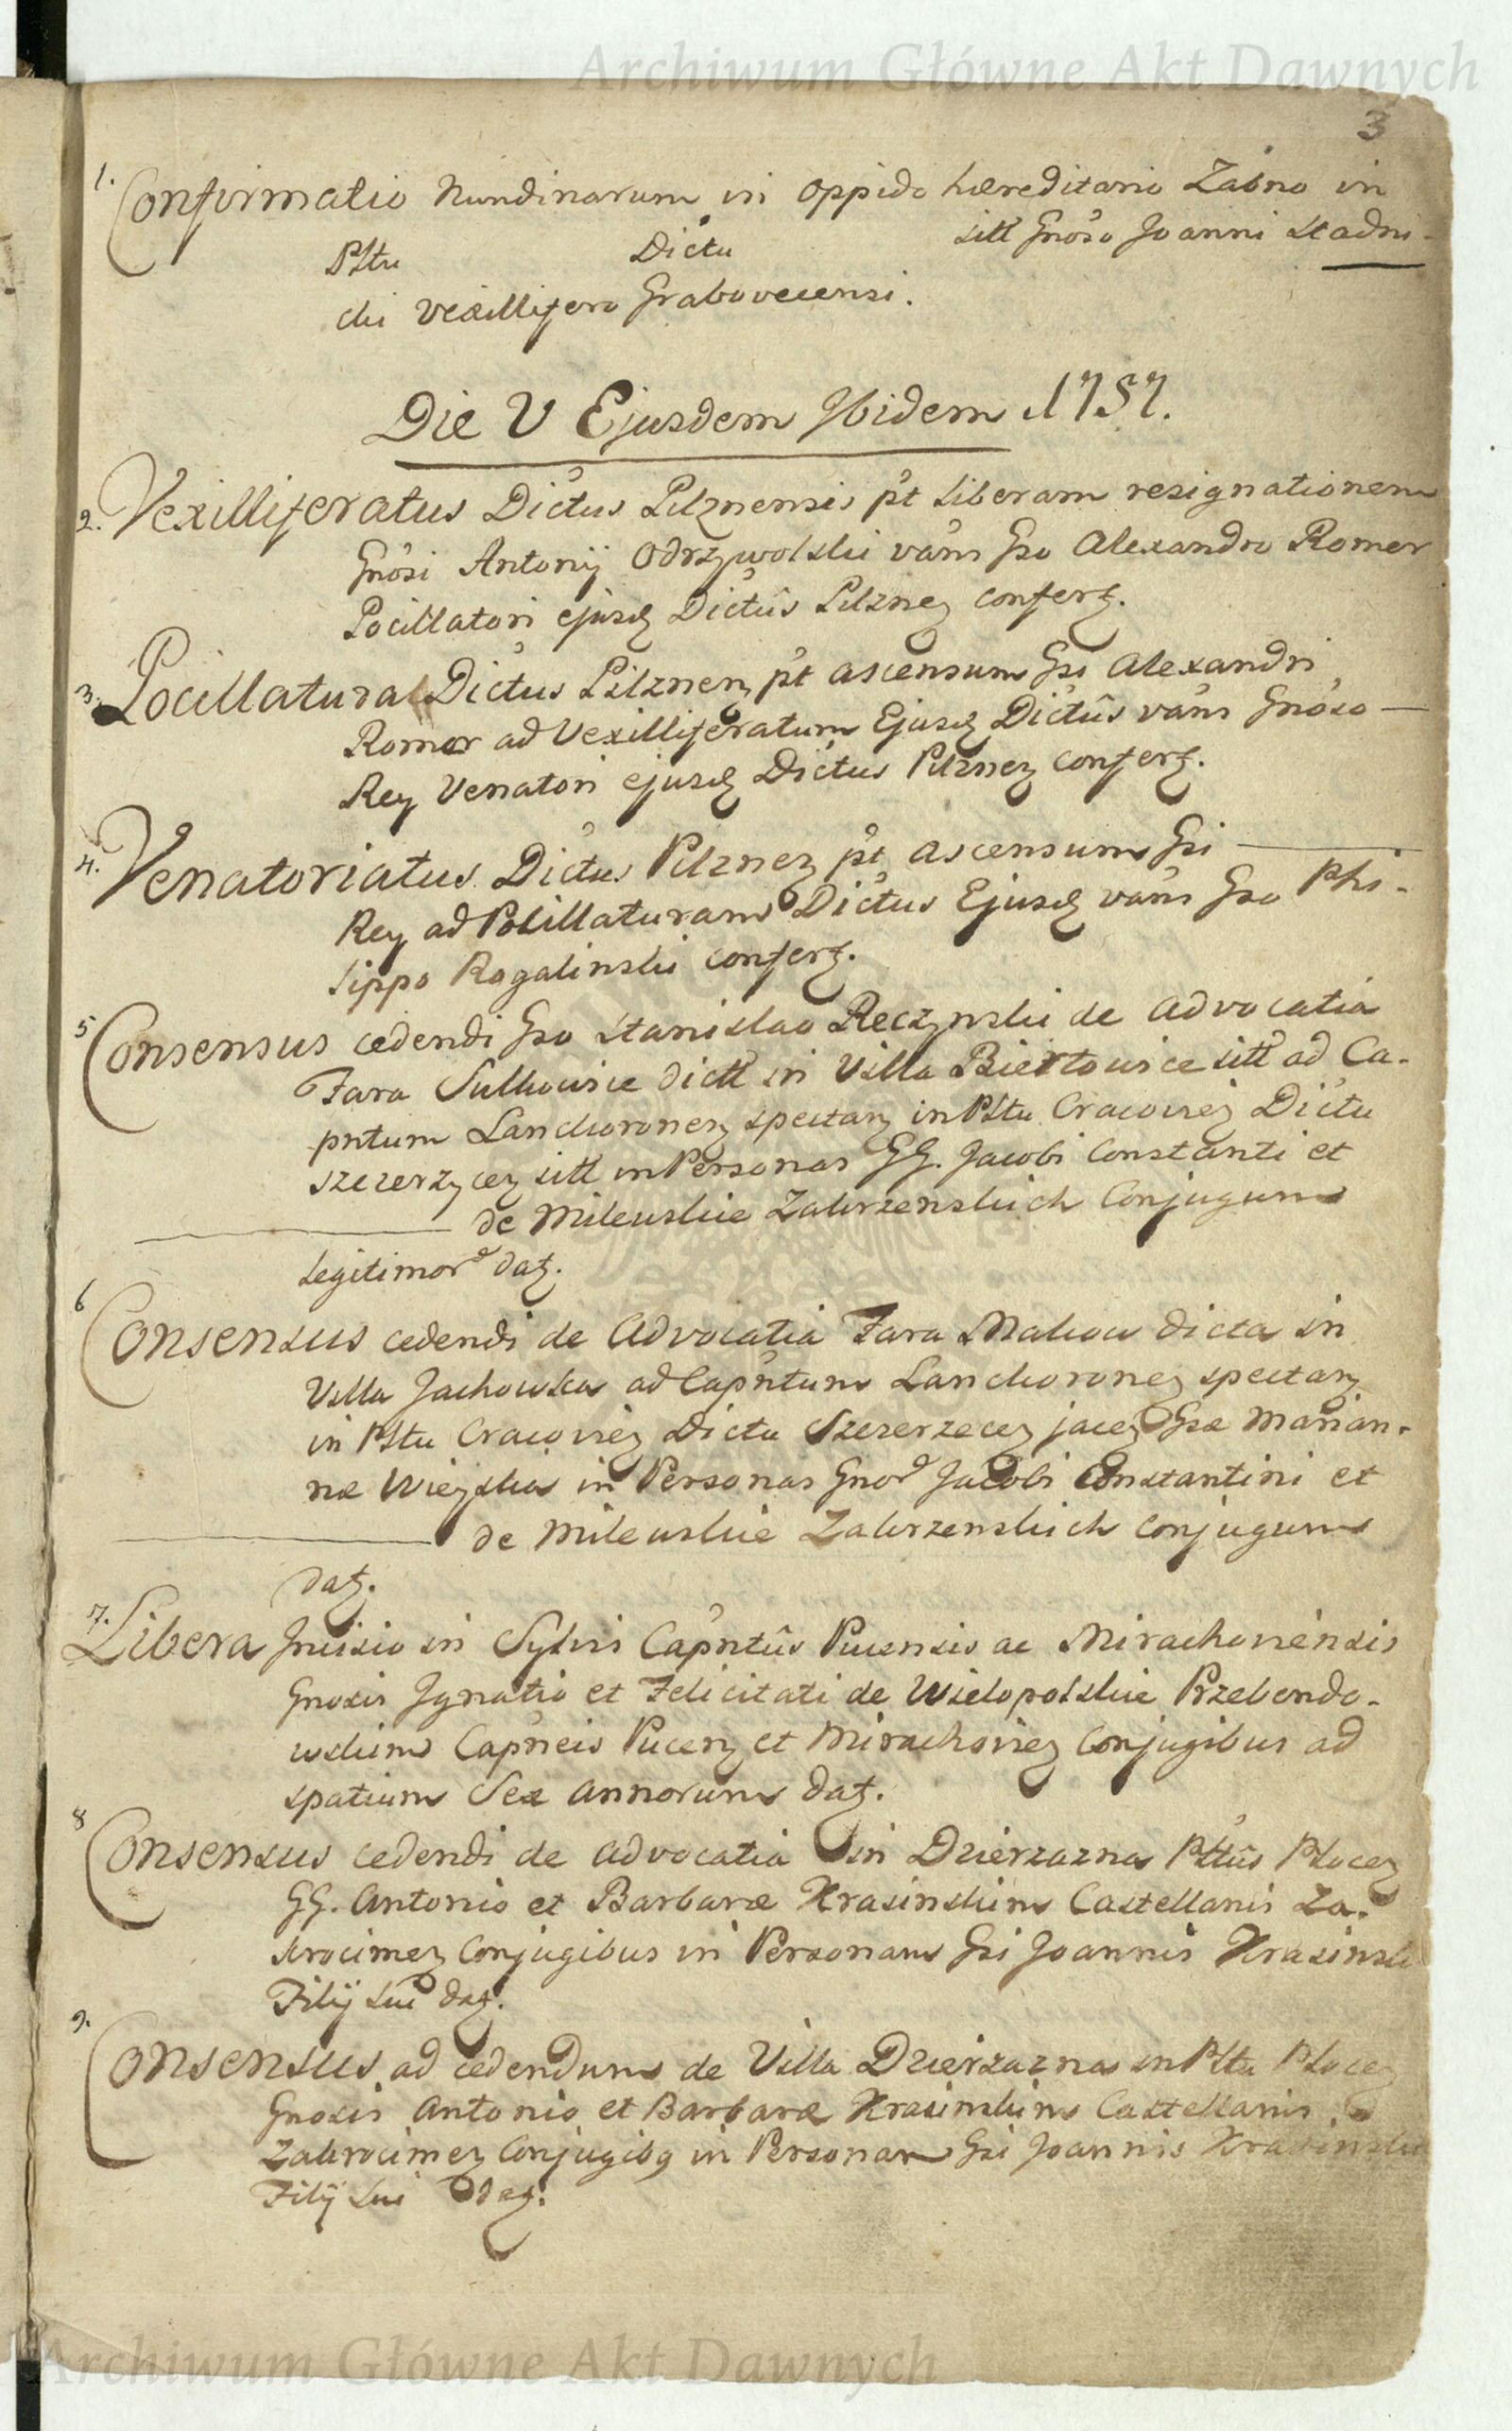 Archiwum Główne Akt Dawnych
3
1. Confirmatio Nundinarum in oppido hæreditario Zabno in
Pltu Dictu sitt Gnoso Joanni Stadni-
cki Vexillifero Grabovecensi.
Die V Ejusdem Ibidem 1757.
2. Vexilliferatus Dictus Pilznensis pt liberam resignationem
Gnosi Antonij Odrzywolski vans Gso Alexandro Romer
Pocillatori ejusd Dictûs Pilznen confert.
3. Pocillatura Dictus Pilznen pt ascensum Gsi Alexandri
Romer ad Vexilliferatum Ejusd Dictûs vans Gnoso —
Rey Venatori ejusd Dictus Pilznen confert.
4. Venatoriatus Dictus Pilznen pt ascensum Gsi —
Rey ad Pocillaturam Dictus Ejusd vans Gso Phi-
lippo Rogalinski confert.
5 Consensus cedendi Gso Stanislao Reczynski de Advocatia
Fara Sulkowice dictt in Villa Biertowice sitt ad Ca-
pntum Lanckoronen spectan in Pltu Cracovien Dictu
Szczerzycen sitt in Personas GG. Jacobi Constanti et
— de Milewskie Zakrzenskich Conjugum
legitimor dat.
6 Consensus cedendi de Advocatia Fara Makow dicta in
Villa Jachowka ad Capntum Lanckoronen spectan
in Pltu Cracovien Dictu Szczerzecen jacen Gsæ Marian-
næ Wieyska in Personas Gnor Jacobi Constantini et
— de Milewskie Zakrzenskich conjugum
dat.
7. Libera Incisio in Sylvis Capntûs Pucensis ac Mirachoviensis
Gnosis Ignatio et Felicitati de Wielopolskie Przebendo-
wskim Capneis Pucen et Mirachovien Conjugibus ad
spatium Sex annorum dat.
8 Consensus cedendi de advocatia in Dzierzazna Pltûs Plocen
GG. Antonio et Barbaræ Krasinskim Castellanis Za-
krocimen Conjugibus in Personam Gsi Joannis Krasinski
Filij sui dat.
9. Consensus ad cedendum de Villa Dzierzazna in Pltu Plocen
Gnosis Antonio et Barbaræ Krasinskim Castellanis
Zakrocimen Conjugibq in Personam Gsi Joannis Krasinski
Filij sui dat.
Archiwum Główne Akt Dawnych